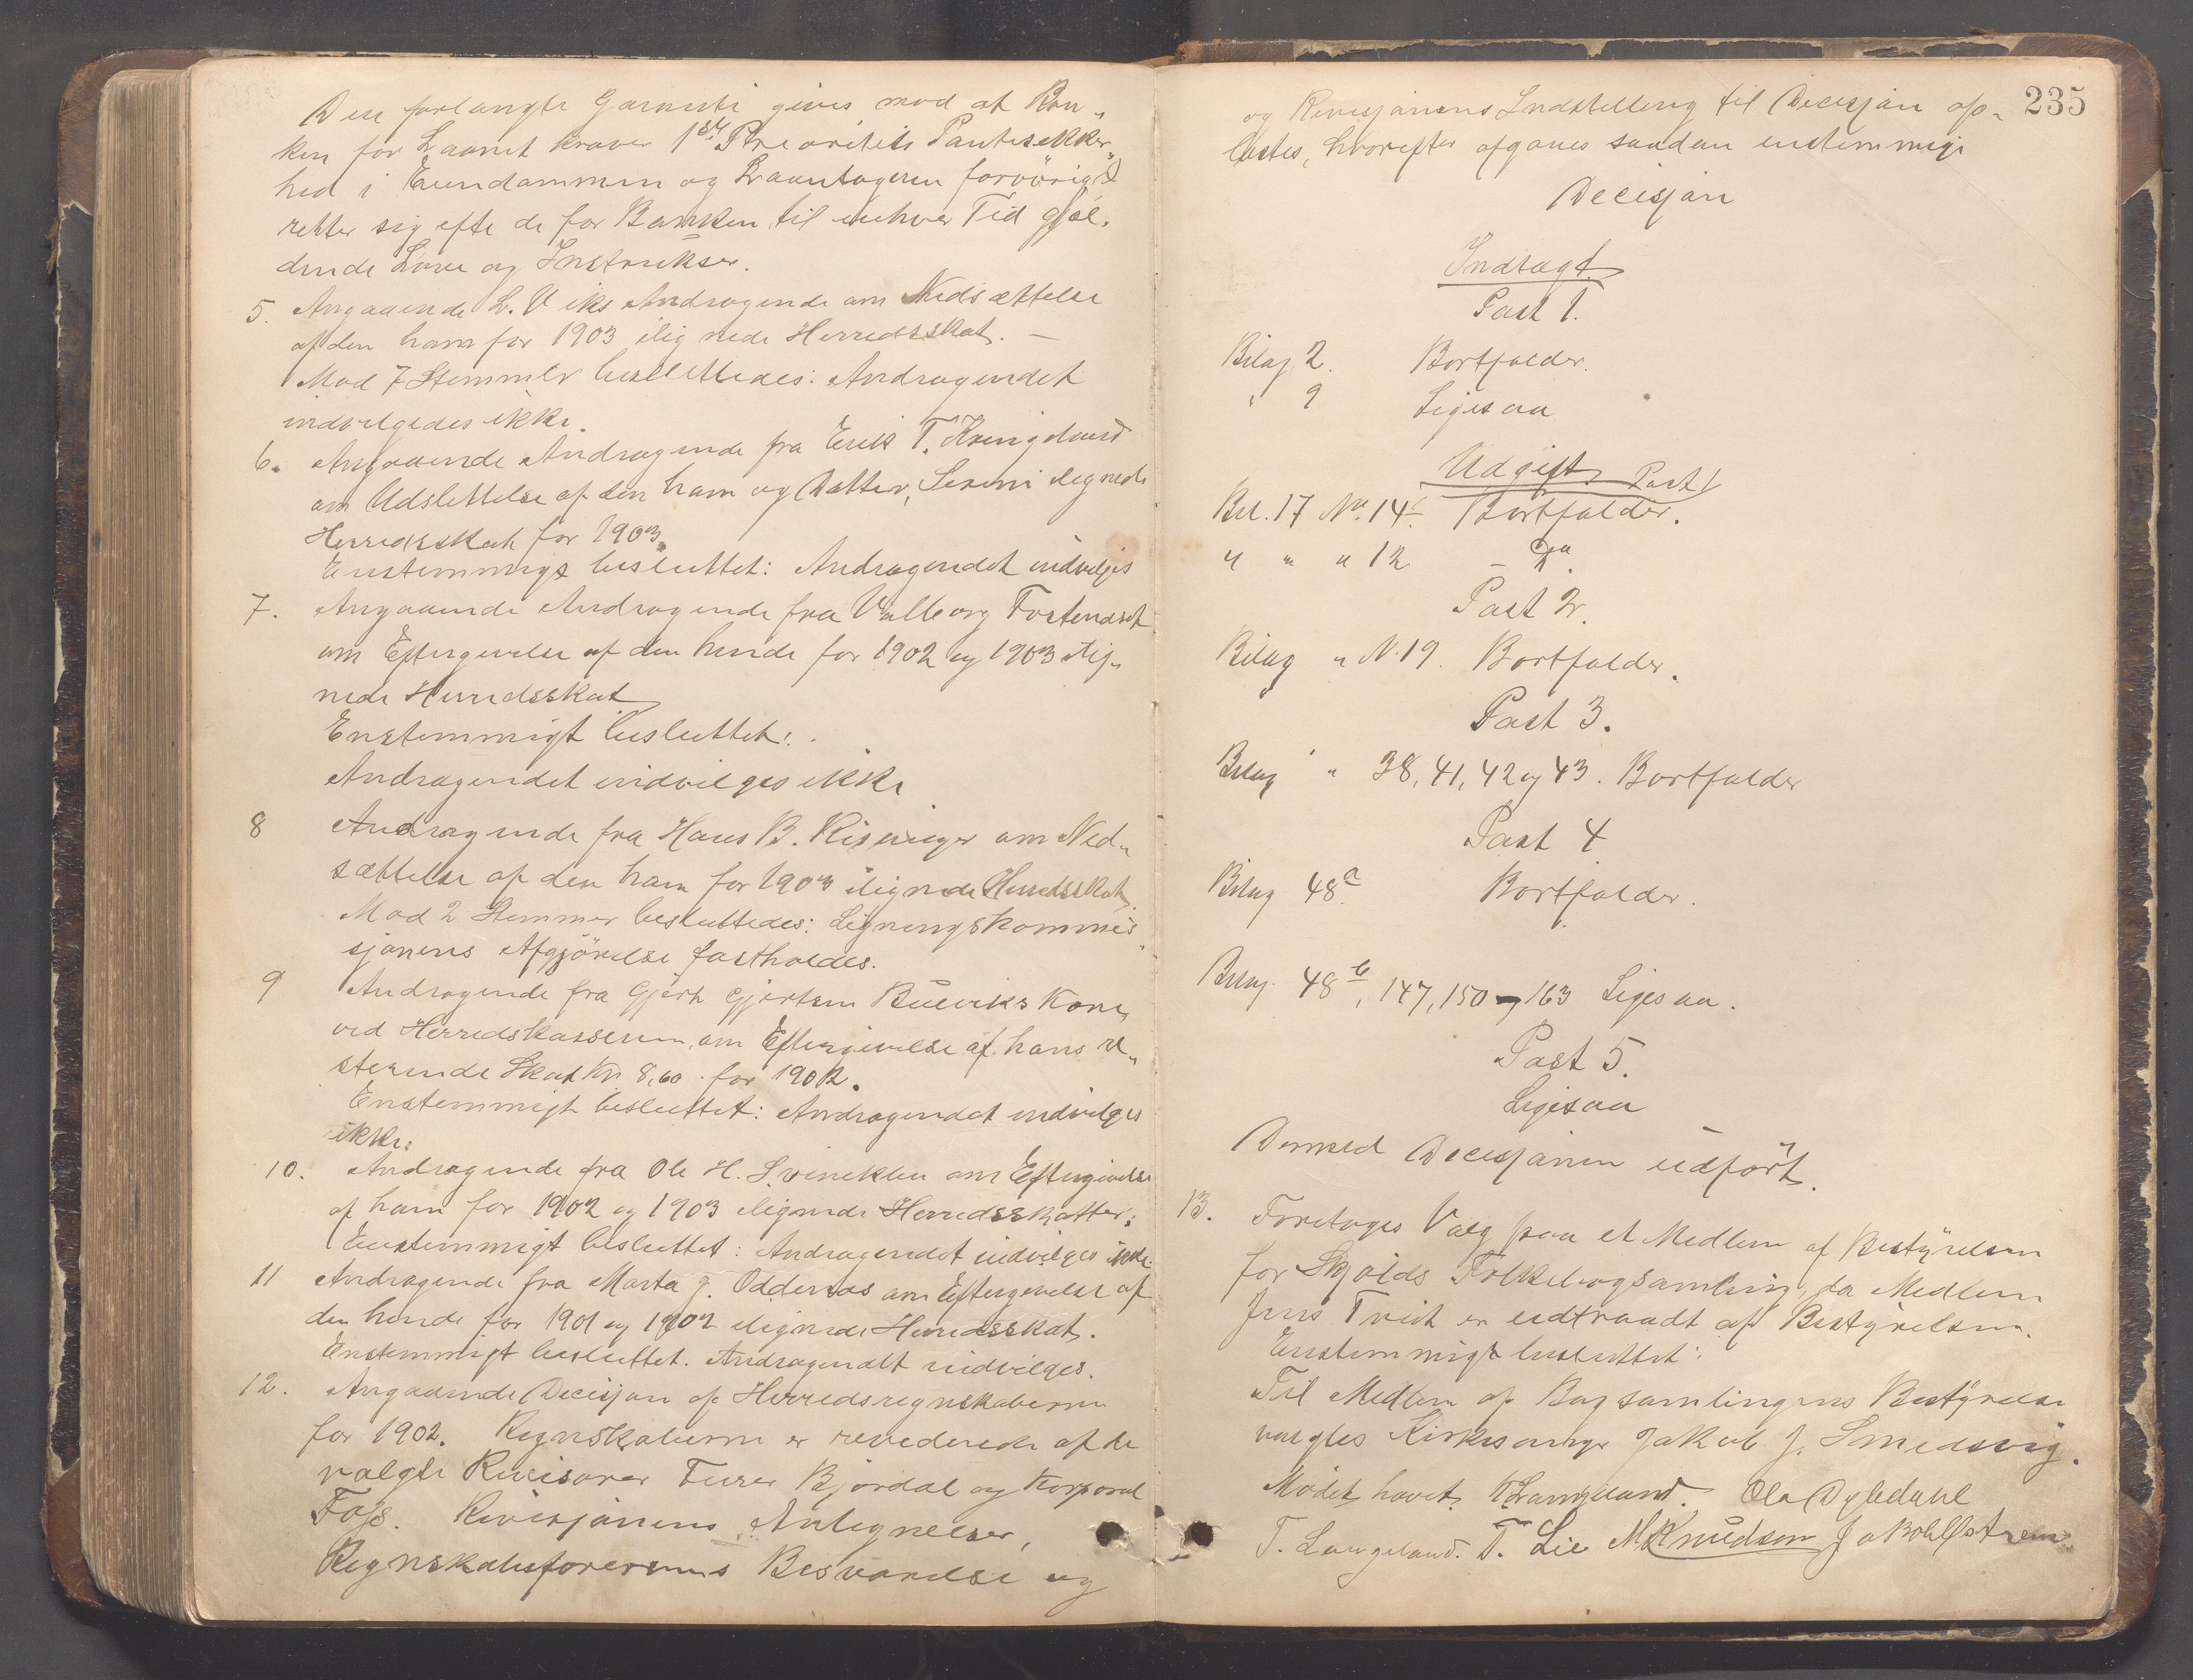 Den forlangte Garanti gives mod at Ban„
ken for Laanet kræver 1ste Prioritets Pantesikker„
hed i Eiendommen og Laantageren forövrigt
retter sig efte de for Banken til enhver Tid gjæl„
dende Love og Instrukser.
5. Angaaende L. Viks Andragende om Nedsættelse
af den ham for 1903 ilignede Herredsskat. —
Mod 7 Stemmer besluttedes: Andragendet
indvilgedes ikke.
6. Angaaende Andragende fra Erik T. Kringeland
om Udslettelse af den ham og Datter, Sereni ilignede
Herredsskat for 1903.
Enstemmigt besluttet: Andragendet indvilges
7. Angaaende Andragende fra Valborg
om Eftergivelse af den hende for 1902 og 1903 ilig„
nede Herredsskat
Enstemmigt besluttet:
Andragendet indvilges ikke
8 Andragende fra Hans B. om Ned„
sættelse af den ham for 1903 ilignede Herredsskat.
Mod 2 Stemmer besluttedes: Ligningskommis„
sjonens Afgjörelse fastholdes.
9 Andragende fra Gjert Gjertsen Kone
ved Herredskasseren, om Eftergivelse af hans re„
sterende Skat Kr. 8,60 for 1902.
Enstemmigt besluttet: Andragendet indvilges
ikke.
10. Andragende fra Ole H. Svineklei om Eftergivelse
af ham for 1902 og 1903 ilignede Herredsskatter:
Enstemmigt besluttet: Andragendet indvilges ikke.
11 Andragende fra Marta J. Oddenæs om Eftergivelse af
den hende for 1901 og 1902 ilignede Herredsskat.
Enstemmigt besluttet. Andragendet indvilges.
12. Angaaende Decisjon af Herredsregnskaberne
for 1902. Regnskaberne er reviderede af de
valgte Revisorer Furer Bjordal og Korporal
Foss. Revisjonens Antegnelser,
Regnskabsförerens Besvarelse og
235
og Revisjonens Indstilling til Decisjon op„
læstes, hvorefter afgaves saadan enstemmige
Decisjon
Indtægt
Post 1.
Bilag 2. Bortfalder.
" 9 Ligesaa
Udgift Post 1
Bil. 17 No. 14c Bortfalder.
" " " 12 — Do
Post 2.
Bilag " N. 19. Bortfalder.
Post 3.
Bilag " 38, 41, 42 og 43. Bortfalder
Post 4
Bilag 48a Bortfalder.
Bilag 48b, 147, 150 og 163 Ligesaa.
Post 5.
Ligesaa
Dermed Decisjonen udfört.
13. Foretoges Valg paa et Medlem af Bestÿrelsen
for Skjolds Folkebogsamling, da Medlem
Jens Tveit er udtraadt af Bestÿrelsen.
Enstemmigt besluttet:
Til Medlem af Bogsamlingens Bestÿrelse
valgtes Kirkesanger Jakob J. Smedsvig.
Mödet hævet. K Langeland. Ola Dybdahl
T. Langeland. T. Lie M Knudsen Jakob Østrem